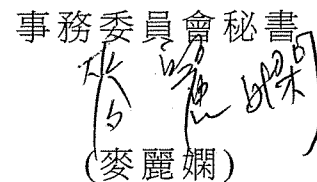 事務委員會秘書
(麥麗嫻)